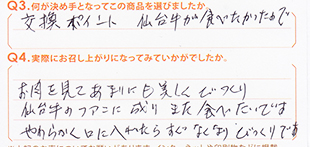 Q3.何が決め手となってこの商品を選びましたか。
交換ポイントに 仙台牛が食べたかったので
Q4.実際にお召し上がりになってみていかがでしたか。
お肉を見てあまりにも美しく びっくり
仙台牛のファンに成り また食べたいです
やわらかく口に入れたらすぐなくなり びっくりです